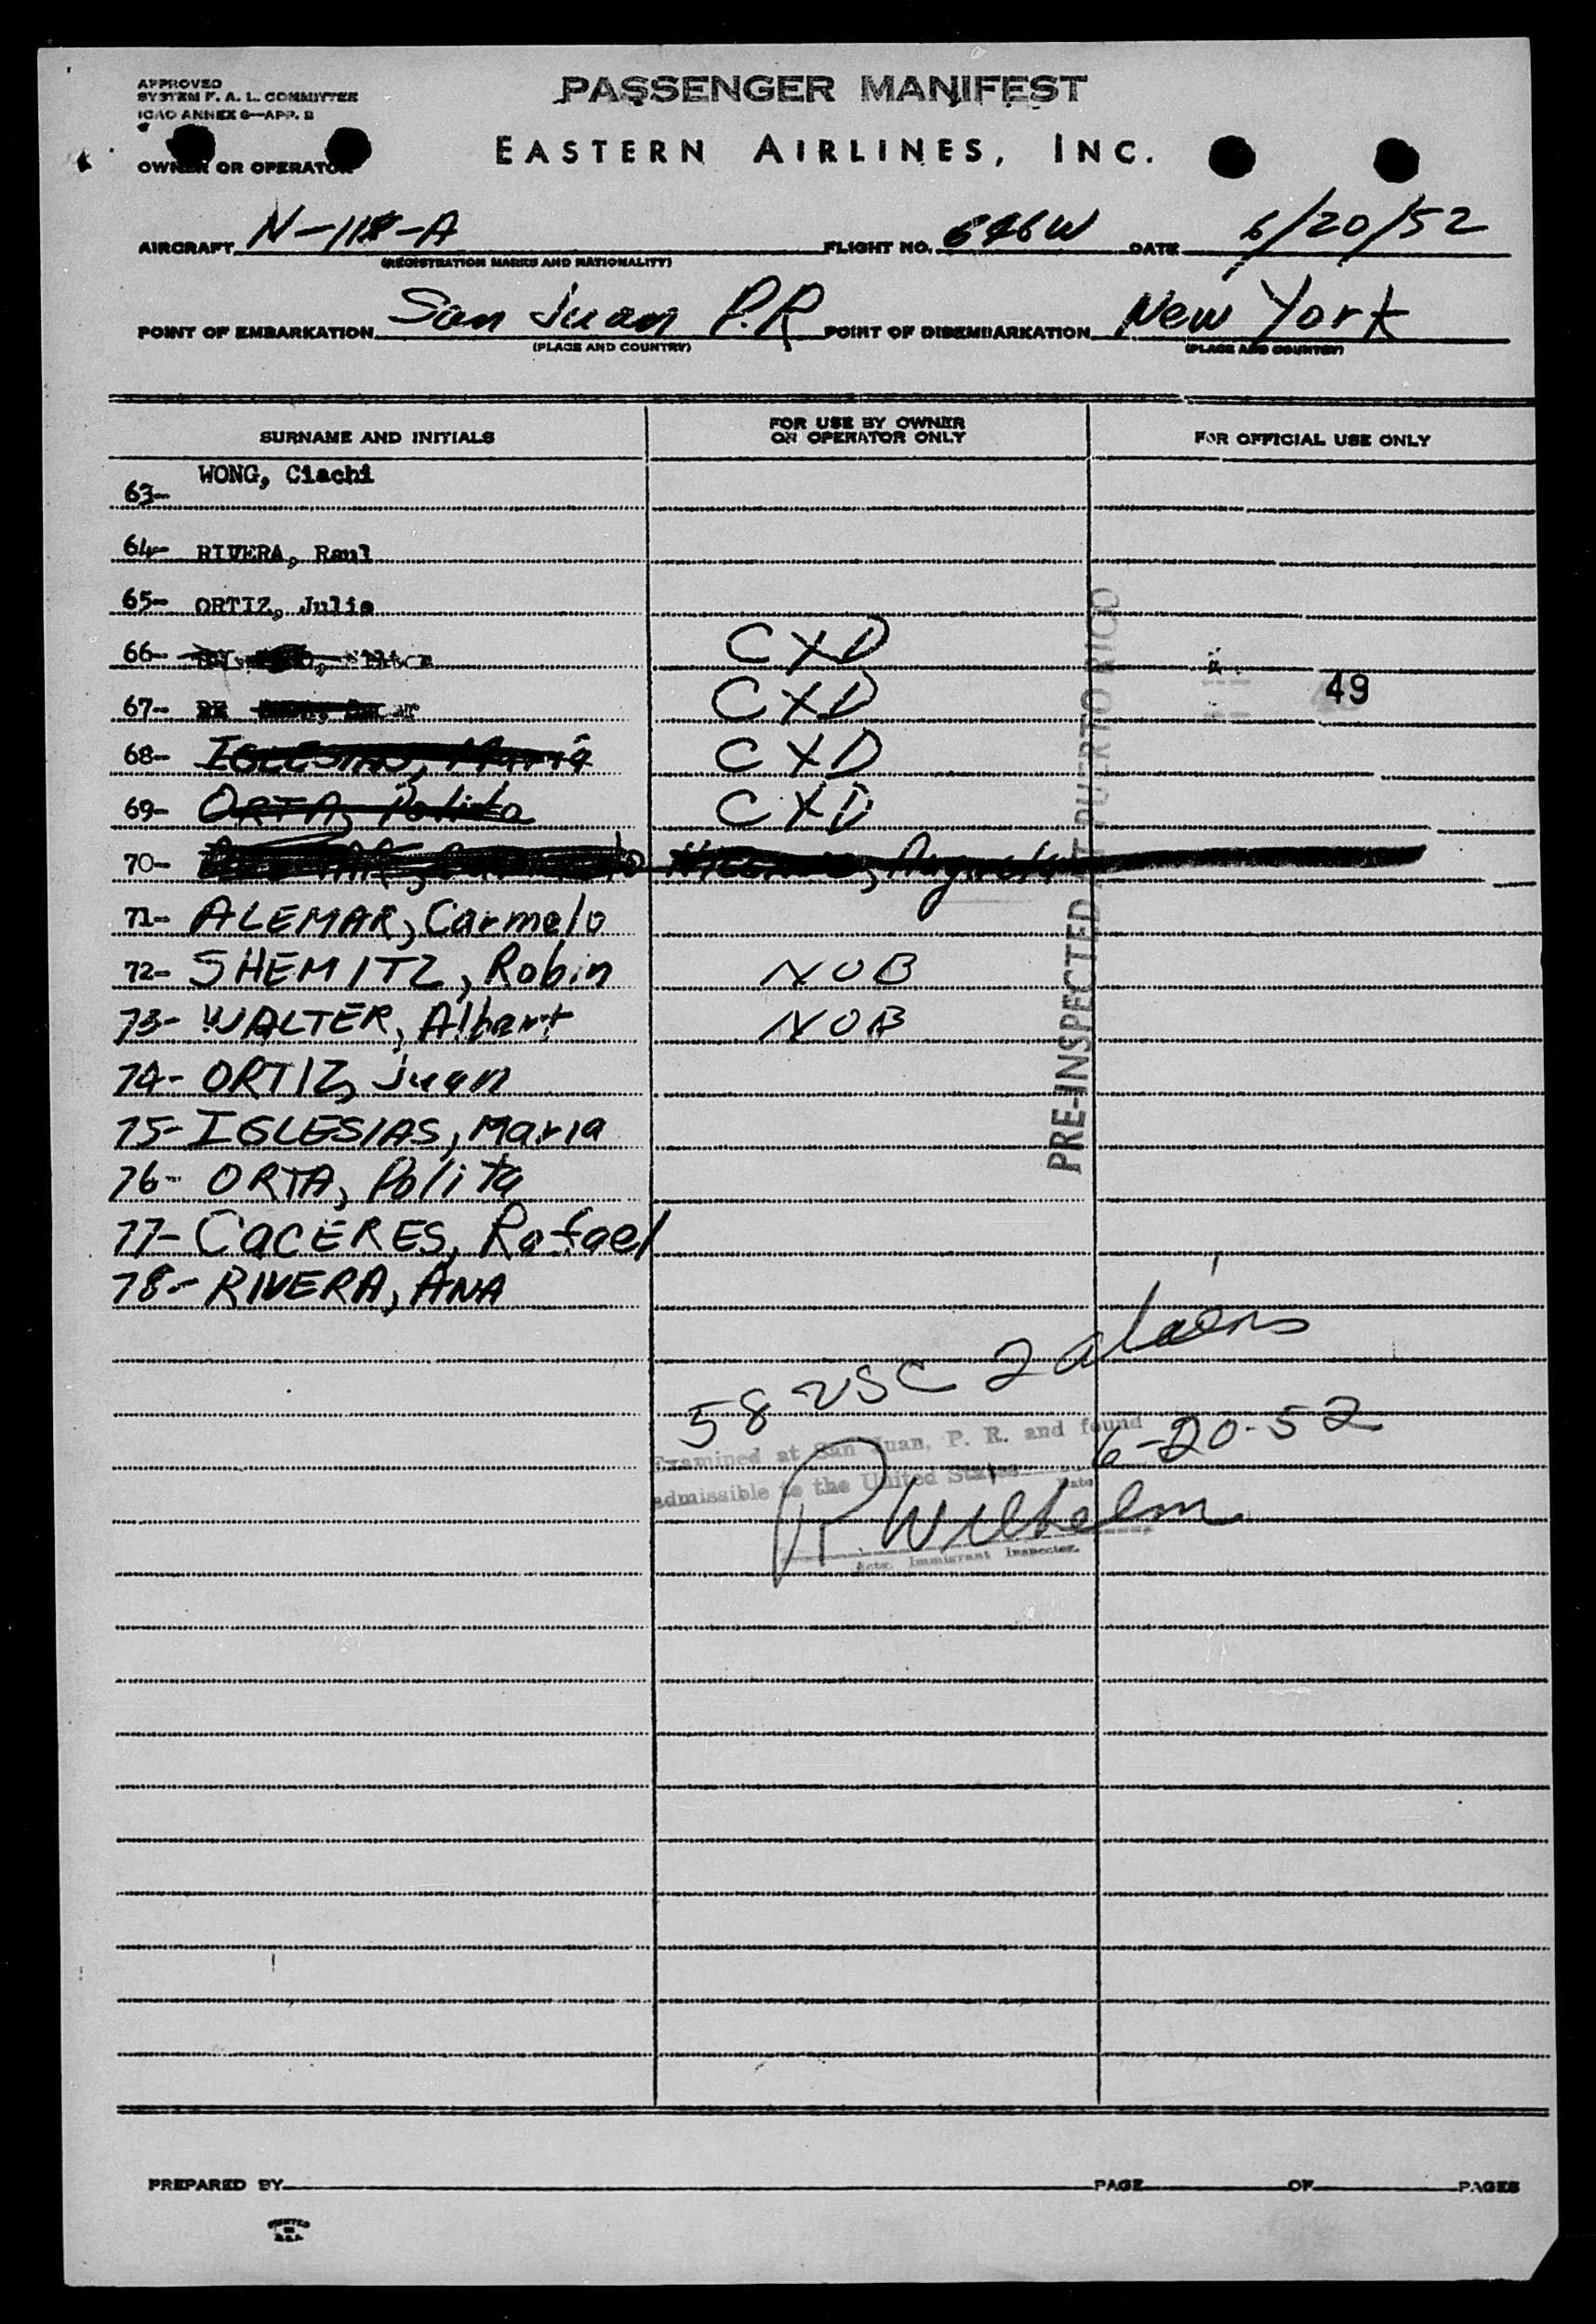 APPROVED
SYSTEM F. A. L. COMMITTEE
ICAO ANNEX 9—APP. 2
PASSENGER MANIFEST
EASTERN AIRLINES, INC.
OWNER OR OPERATOR
AIRCRAFT N-118-A FLIGHT NO. 646W DATE 6/20/52
(REGISTRATION MARKS AND NATIONALITY)
POINT OF EMBARKATION San Juan P.R POINT OF DISEMBARKATION New York
(PLACE AND COUNTRY) (PLACE AND COUNTRY)
SURNAME AND INITIALS FOR USE BY OWNER OR OPERATOR ONLY FOR OFFICIAL USE ONLY
63- WONG, Ciachi
64- RIVERA, Raul
65- ORTIZ, Julia
66- CXD
67- CXD 49
68- IGLESIAS, Maria CXD
69- ORTA, Polita CXD
70-
71- ALEMAR, Carmelo
72- SHEMITZ, Robin NOB
73- WALTER, Albert NOB
74- ORTIZ, Juan
75- IGLESIAS, Maria
76- ORTA, Polita
77- CACERES, Rafael
78- RIVERA, ANA
PRE-INSPECTED AT PUERTO RICO
58 USC 2 aliens
Examined at San Juan, P. R. and found
admissible to the United States 6-20-52
Date
R Wilhelm
Actg. Immigrant Inspector.
PREPARED BY PAGE OF PAGES
PRINTED
IN
U.S.A.